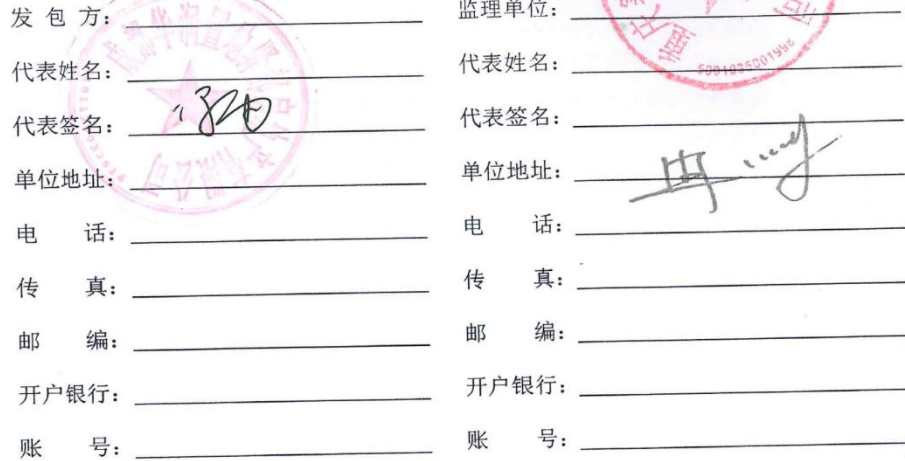 发 包 方：
代表姓名：
代表签名：
单位地址：
电 话：
传 真：
邮 编：
开户银行：
账 号：
监理单位：
代表姓名：
代表签名：
单位地址：
电 话：
传 真：
邮 编：
开户银行：
账 号：
有限公司